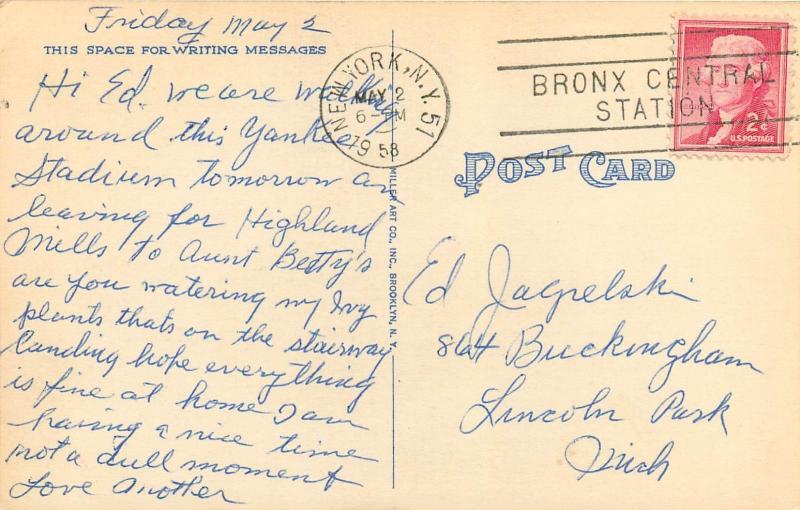 Friday May 2
THIS SPACE FOR WRITING MESSAGES
Hi Ed. we are walking
around this Yankee
Stadium tomorrow am
leaving for Highland
Mills to Aunt Betty's
are you watering my Ivy
plants thats on the stairway
landing hope everything
is fine at home I am
having a nice time
not a dull moment
Love
MILLER ART CO., INC., BROOKLYN, N. Y.
NEW YORK, N.Y. 51
MAY 2
6-PM
1958
BRONX CENTRAL
STATION
2¢
U.S. POSTAGE
POST CARD
Ed
864 Buckingham
Lincoln Park
Mich